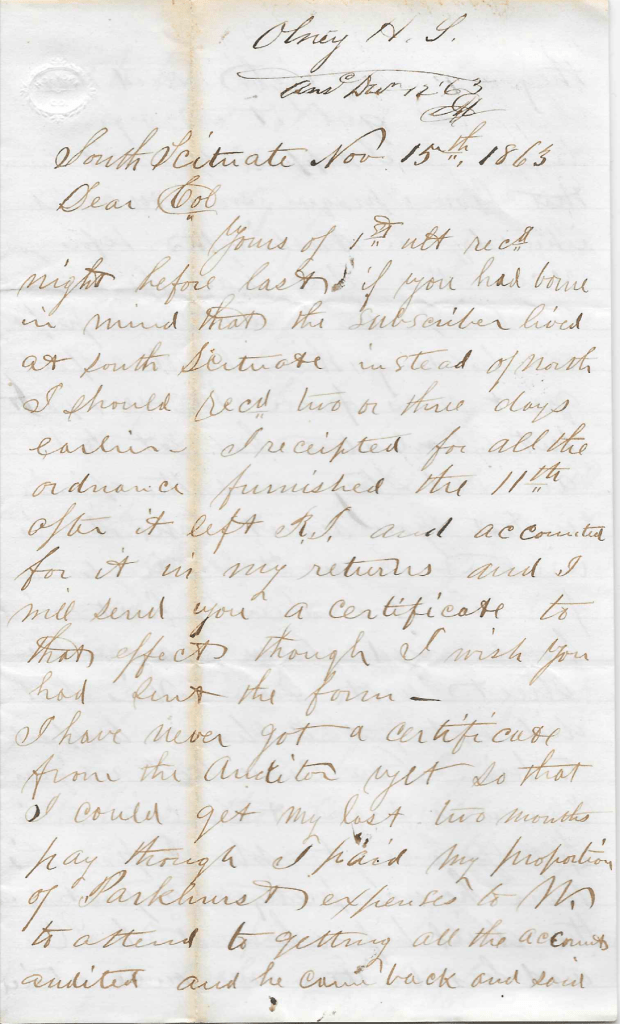 Olney H. S.
Ansd Decr 12 '63
South Scituate Nov 15th, 1863
Dear Col
Yours of 1st ult recd
night before last, if you had borne
in mind that the subscriber lived
at South Scituate instead of North
I should recd two or three days
earlier - I receipted for all the
ordnance furnished the 11th
after it left R.I. and accounted
for it in my returns and I
will send you a certificate to
that effect though I wish you
had sent the form -
I have never got a certificate
from the Auditor yet so that
I could get my last two months
pay though I paid my proportion
of Parkhurst expenses to W.
to attend to getting all the accounts
audited and he came back and said